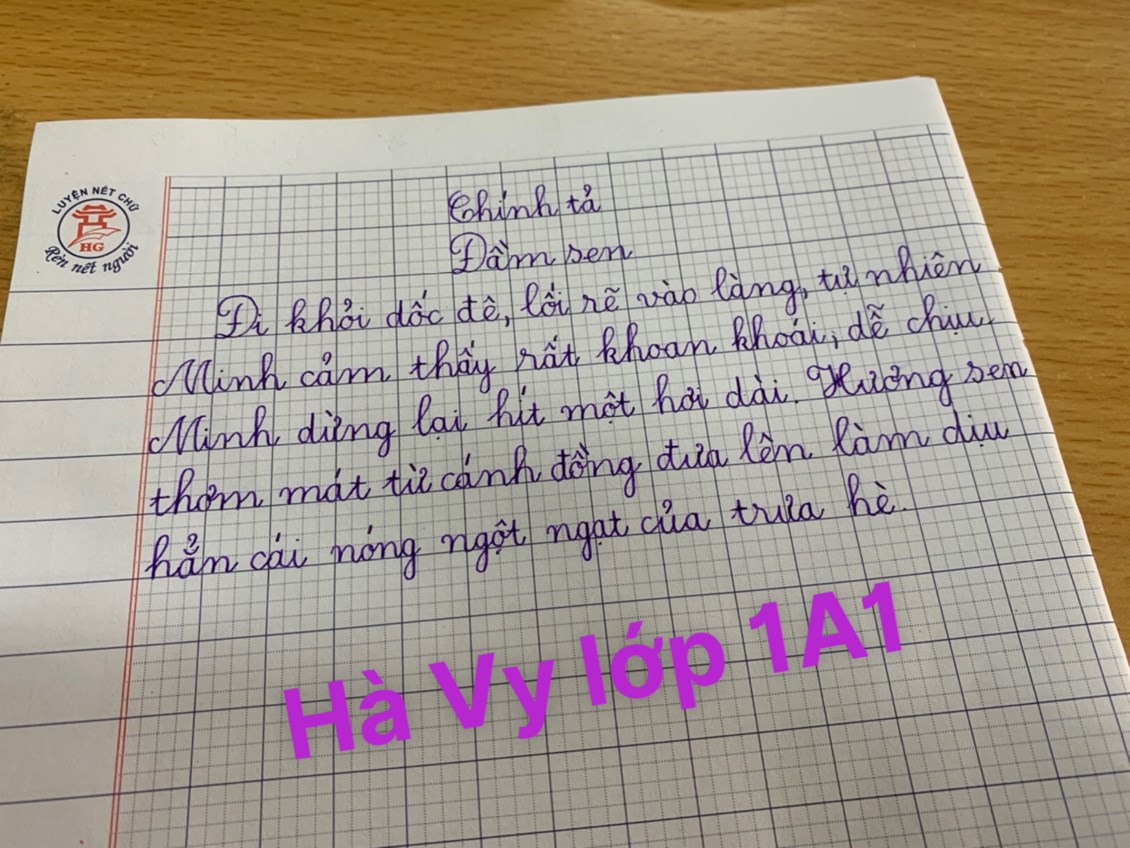 LUYỆN NÉT CHỮ
HG
Rèn nết người
Chính tả
Đầm sen
Đi khỏi dốc đê, lối rẽ vào làng, tự nhiên
Minh cảm thấy rất khoan khoái, dễ chịu.
Minh dừng lại hít một hơi dài. Hương sen
thơm mát từ cánh đồng đưa lên làm dịu
hẳn cái nóng ngột ngạt của trưa hè.
Hà Vy lớp 1A1